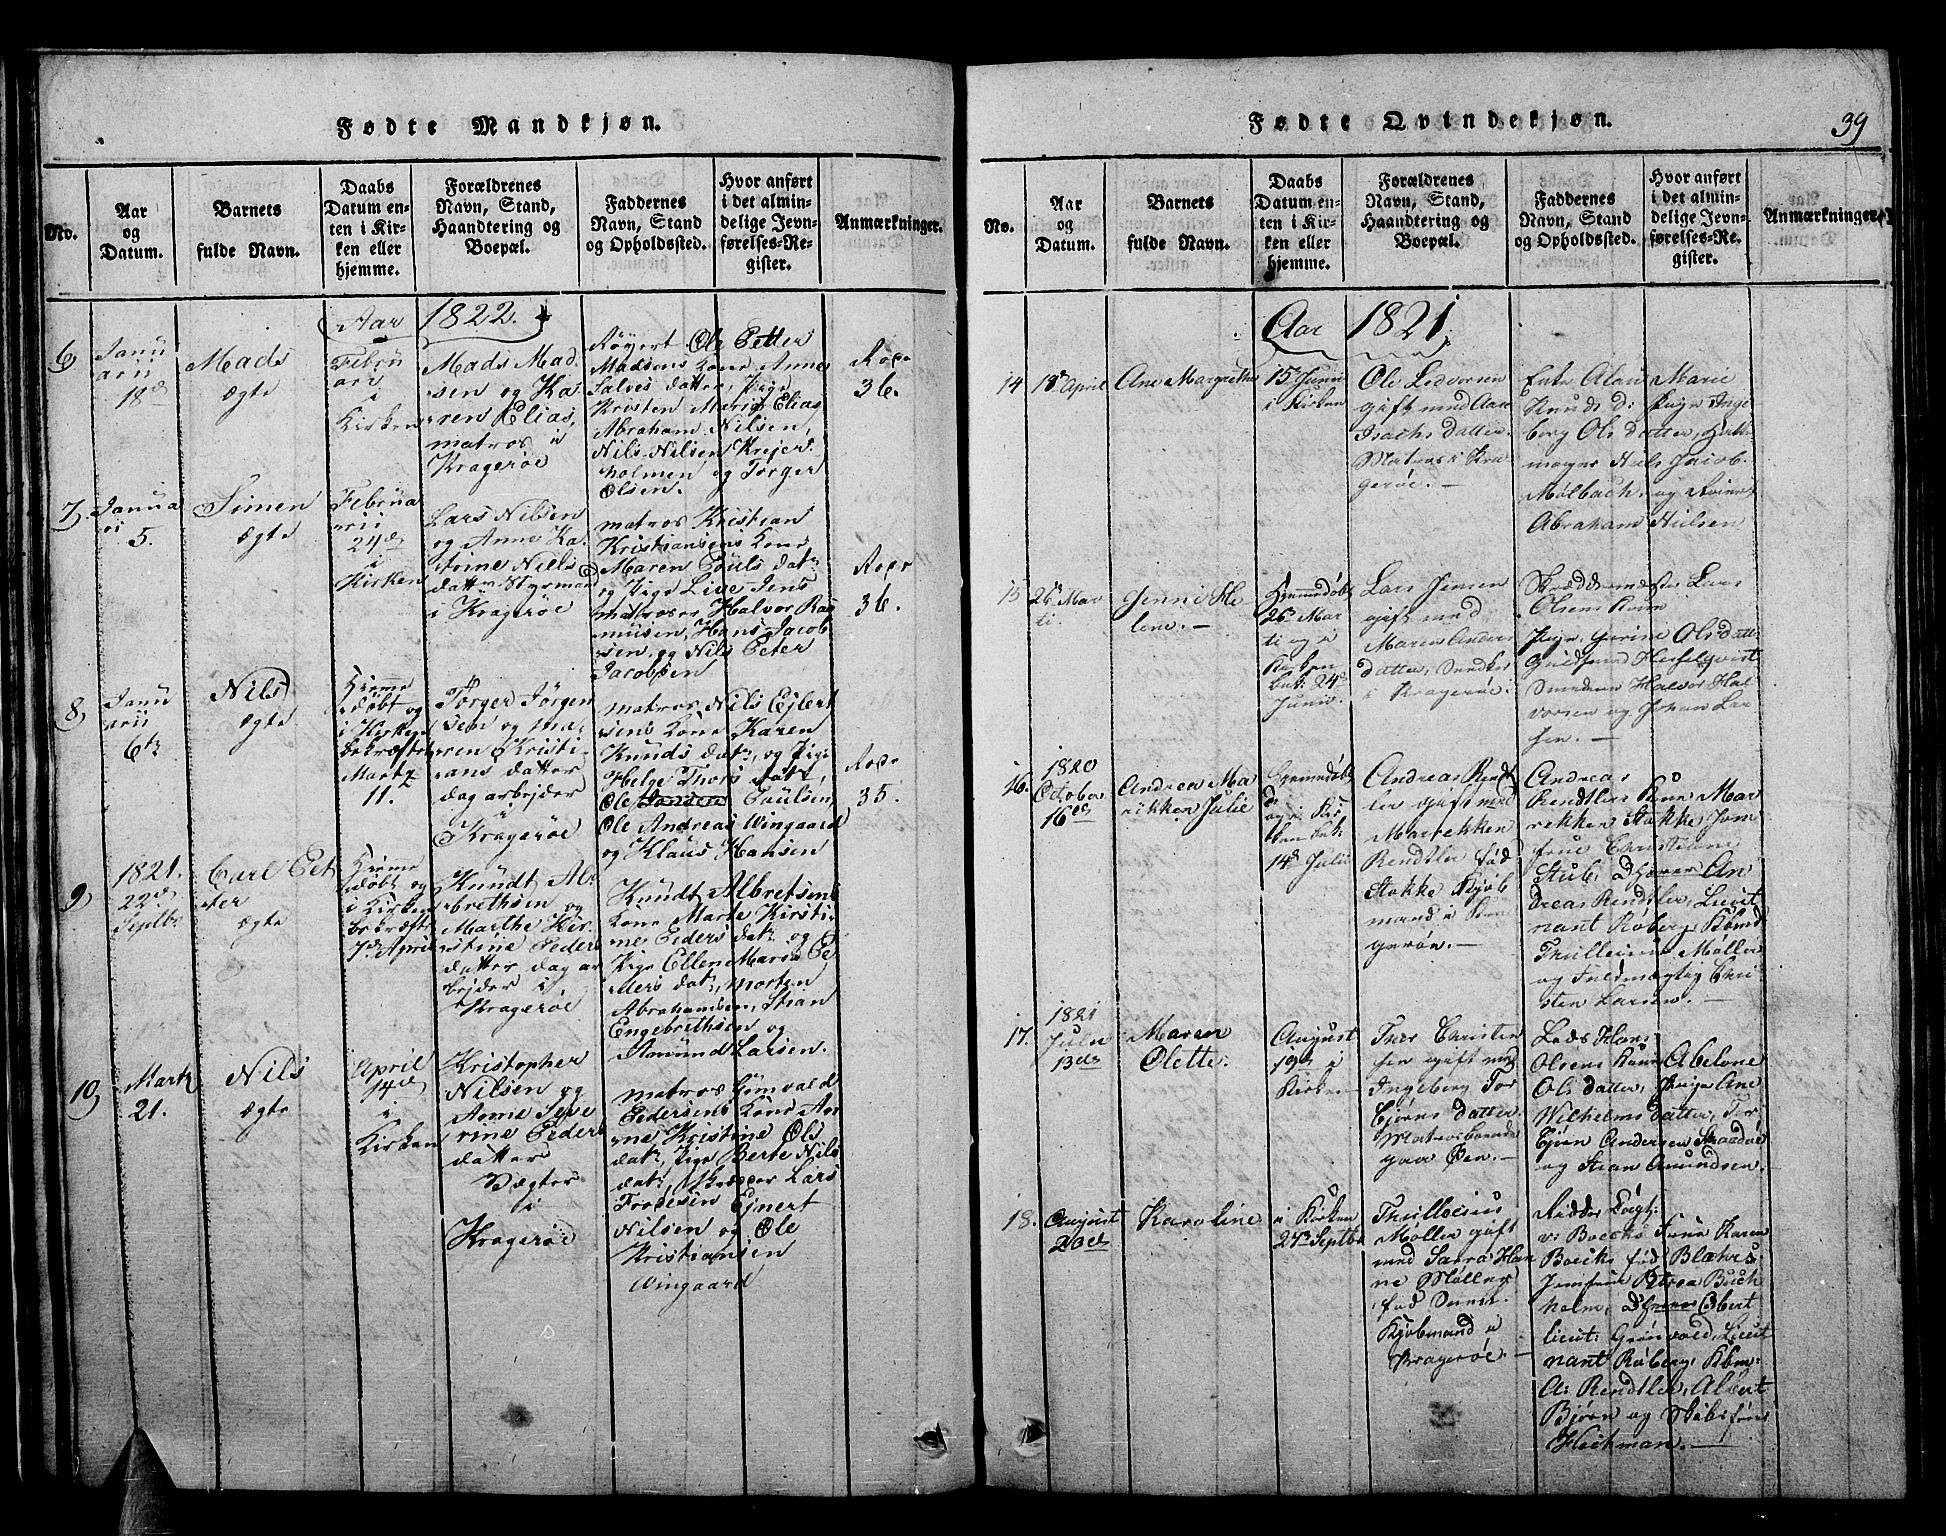 Fødte Mandkjøn.
No.
Aar og Datum.
Barnets fulde Navn.
Daabs Datum enten i Kirken eller hjemme.
Forældrenes Navn, Stand, Haandtering og Boepæl.
Faddernes Navn, Stand og Opholdssted.
Hvor anført i det almindelige Jevnførelses-Register.
Anmærkninger.
Aar 1822.
6
Januarii
18d
Mads
ægte
Februari
i
Kirken
Mads Mad-
sen og Ka-
ren Elias,
matros i
Kragerøe
Røyert Ole Petter
Madsens Kone Anne
Salves datter, Pige
Kirsten Marie Elias
Abraham Nilsen,
Nils Nilsen Krejer-
holmen og Torger
Olsen.
36.
7
Janua
5.
Simen
ægte
Februa
rii
24d
i
Kirken
Lars Nilsen
og Anne Ka-
trine Niels
datter Styrmand
i Kragerøe
matros Kristian
Kristiansens Kone
Maren Pouls datr
og Pige Live Jens
matroser Halvor Ras
musen, Hans Jacob
sen og Nils Peter
Jacobsen
36.
8
Janu
arii
6te
Nils
ægte
Hjeme
døbt og
i Kirken
bekræftet
Marty
11.
Torger Jørgen
sen og
Kristi-
ans datter
dag arbejder
Kragerøe
matros Nils Ejlert
sens Kone Karen
Knuds datr, og Pige
Helge Thors datr,
Ole Jansen Poulsen,
Ole Andreas Wingaard
og Klaus Hansen
35.
9
1821.
22d
Septbr
Carl Pet
ter
ægte
Hjeme
døbt og
i Kirken
bekræftet
7de April
Knudt Al-
brethsen og
Marthe Kir-
stine Peders
datter dag ar
bejder i
Kragerøe
Knudt Albretsens
Kone Marte Kirsti-
ne Peders datr og
Pige Ellen Maria Pe
ders datr, Morten
Abrahamsen, Stian
Engebrethsen og
Amund Larsen.
10
Marti
21.
Nils
ægte
April
14de
i
Kirken
Kristopher
Nilsen og
Anne Seve
rine Peders
datter
Vægter
i
Kragerøe
matros Gunvald
Pedersens Kone An
ne Kristine Ols
datr, Pige Berte Nils
datr, Lars
Ejnert
Nilsen og Ole
Kristiansen
Wingaard
Fødte Qvindekjøn.
39
No.
Aar og Datum.
Barnets fulde Navn.
Daabs Datum enten i Kirken eller hjemme.
Forældrenes Navn, Stand, Haandtering og Boepæl.
Faddernes Navn, Stand og Opholdssted.
Hvor anført i det almindelige Jevnførelses-Re. gister.
Anmærkninger.
Aar 1821
14
18d April
Ane Margrethe
15d Junii
i Kirken
Ole Ledvorsen
gift med Aase
Isachs datter.
Matros i Kra
gerøe.
Enke Marie
Knuds d: Pige Inge
borg Ols datter,
Niels Jacob
Mølbach, og
Abraham Nielsen
15
26d Mar
ti
Jenne He
lene.
Hjemmedøbt
26d Mar
ti og i
Kirken
24d
Junii.
Lars Jensen
gift med
Maren Anders
datter, Smed
i Kragerøe.
Skreddermester Lars
Olsens Kone
Pige Gurine Ols datter
Hesselqvist
Smeden Halvor Hal
vorsen og Johan Lar
sen.
16.
1820
October
16de
Andrea Ma
rikken Julie
Hjemmedøbt
og i Kir
ken
14d Julii
Andreas Rend
ler gift med
Marrekken
Rendtler fød
Stokke Kjøb
mand i Kra
gerøe.
Andreas
Rendtlers Kone Mar
rekken Stokke, Jom
frue Christiane
Stub, An
dreas Rendtler, Lieut
nant Roberg, Kbmd
Thulleius Møller
og Fuldmægtig Chri
sten Larsen.
17.
1821
Juln
13de
Maren
Olette.
August
19de i
Kirken
Thor Christen
sen gift med
Ingeborg Tor
bjørns datter
Matros boende
paa Øen.
Lods Hans
Olsens Kone Abelone
Ols datter, Pige Ane
Wilhelms datter, Tor
Bjørn Andersen
og Stian Amundsen.
18.
August
20de
Karoline
i Kirken
27de Septbr
Thulleius
Møller gift
med Sara Han
ne Møller,
fød
Kjøbmand i
Kragerøe.
Ridder Capt:
v: Boecks Frue Karen
Boecks fød Blæhrs,
Jomfrue Petrea Buch
holm, Obert
lieut: Grønvold, Lieut
nant Roberg, Kbm:
A: Rendtler, Albert
Bjørn og Skibsfører
Heitman.